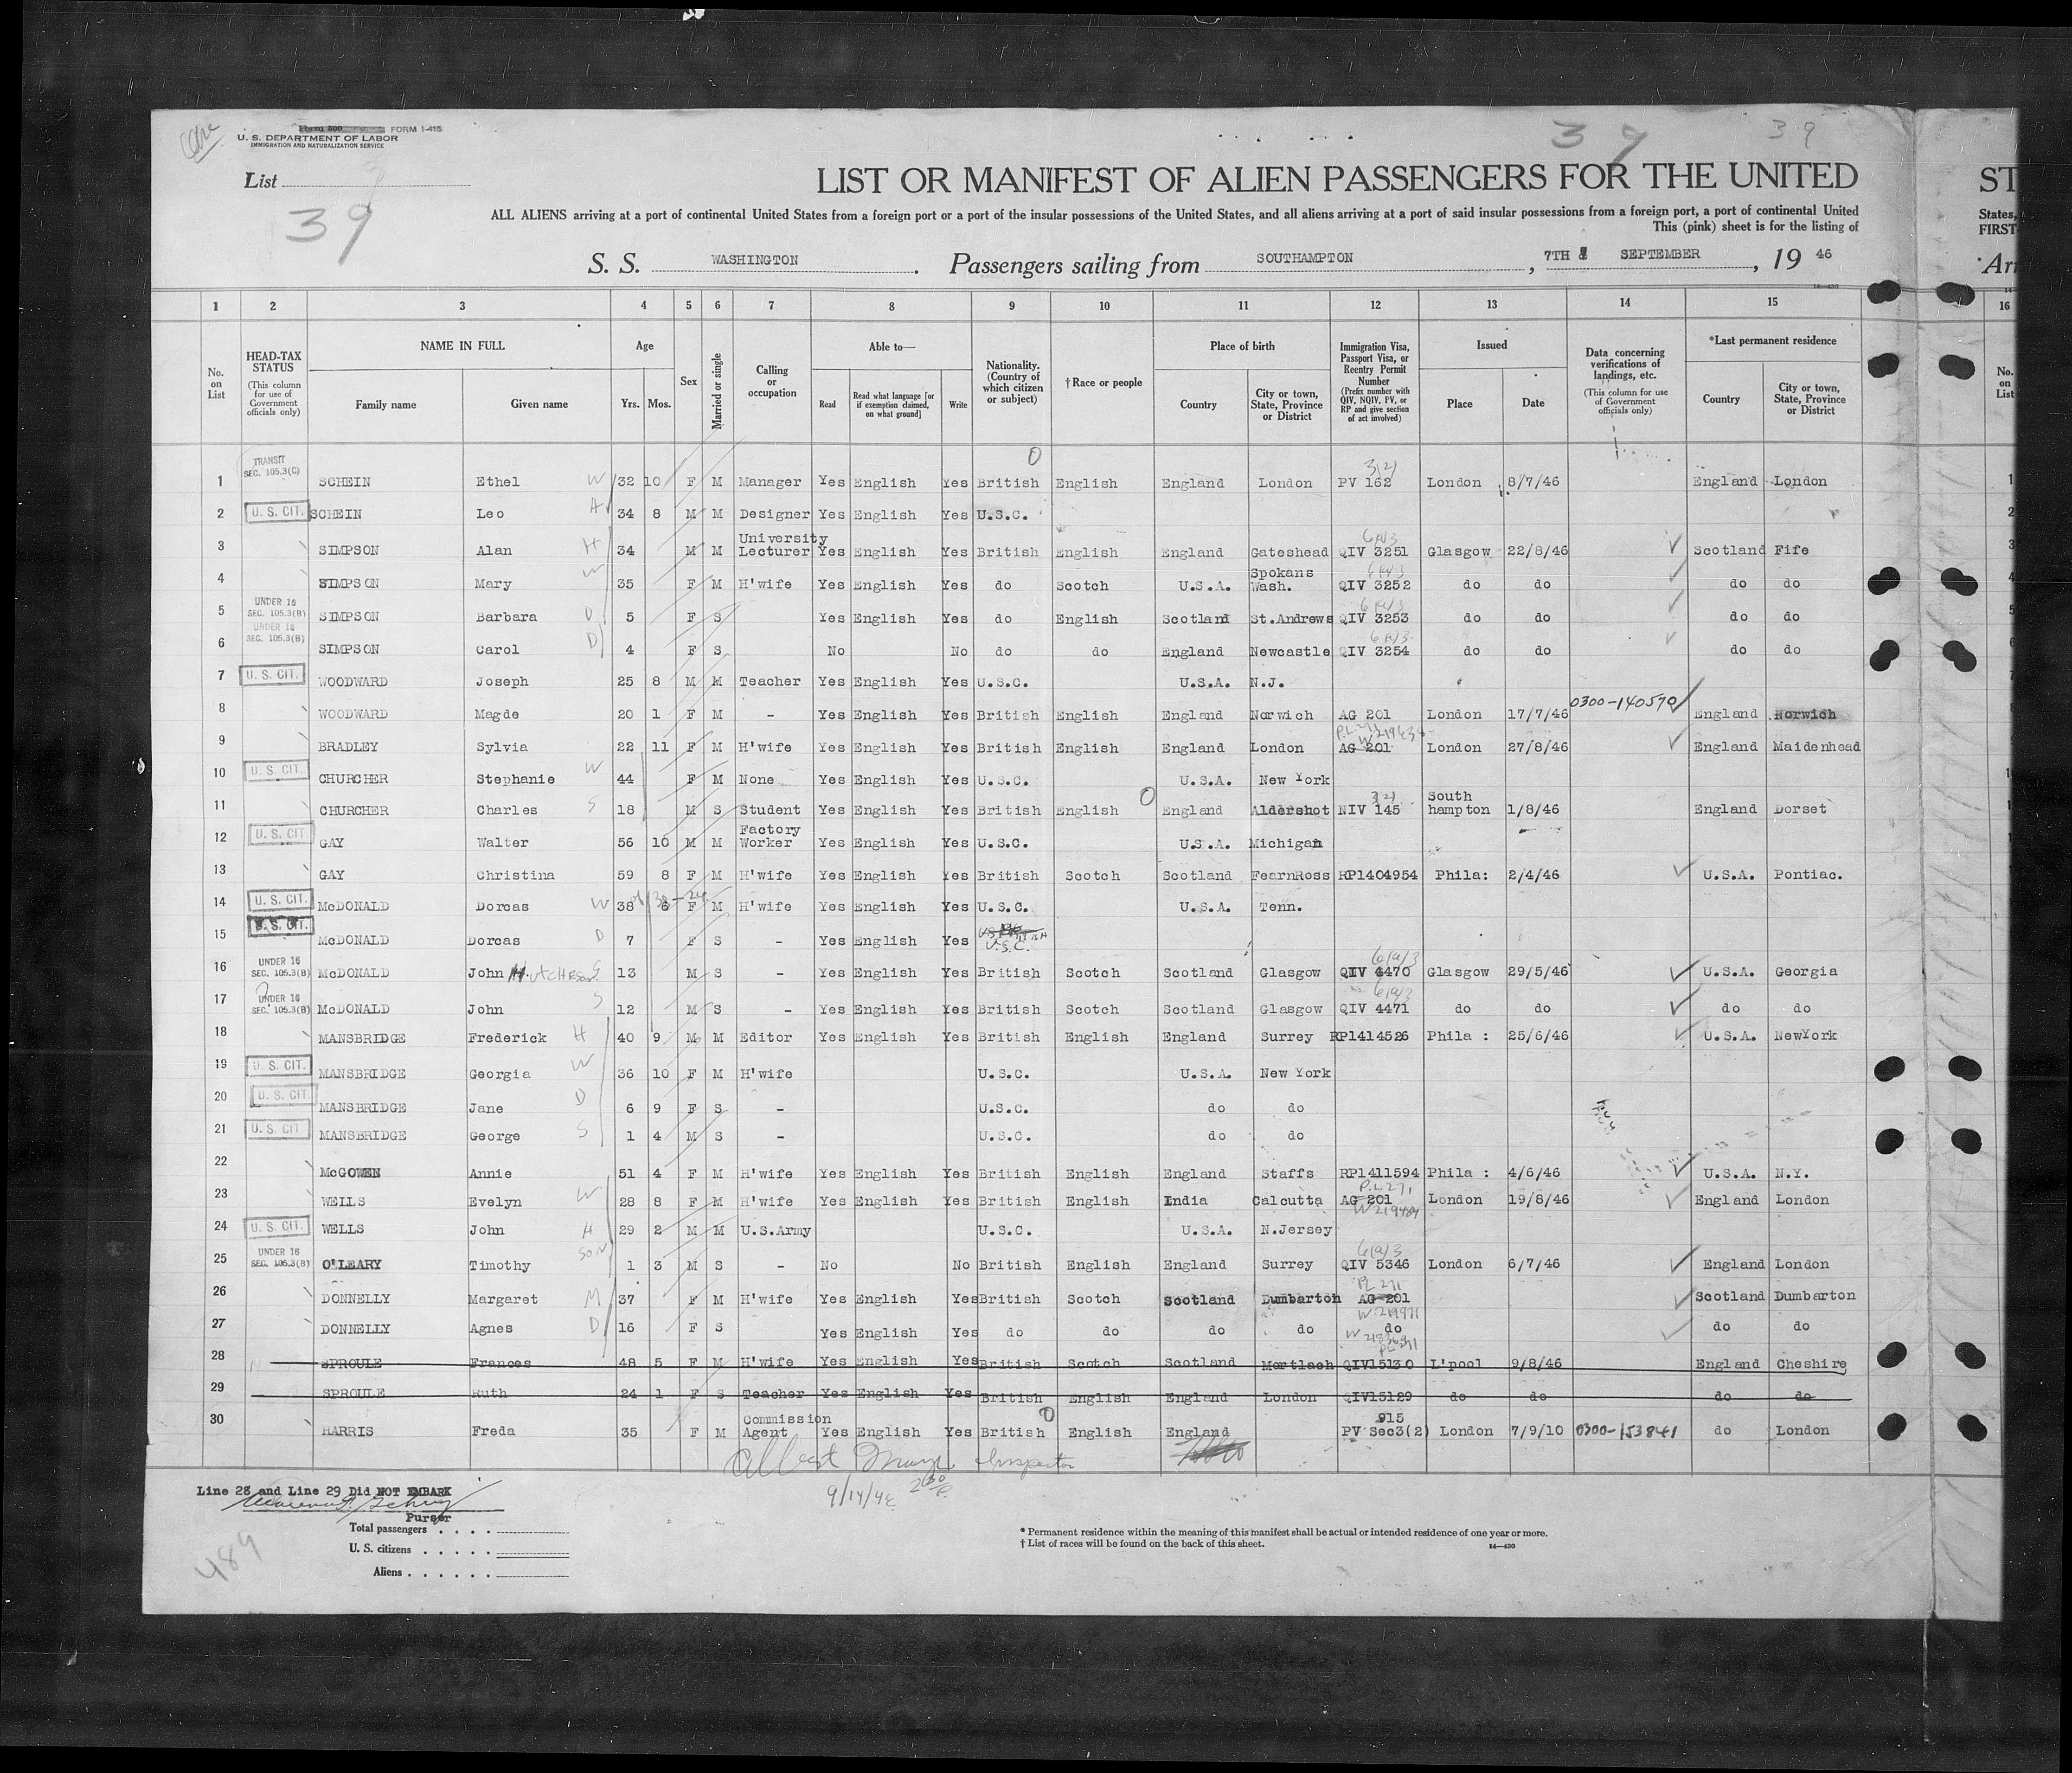 Form 500 FORM I-415
U. S. DEPARTMENT OF LABOR
IMMIGRATION AND NATURALIZATION SERVICE
39 39
List
39
LIST OR MANIFEST OF ALIEN PASSENGERS FOR THE UNITED ST
ALL ALIENS arriving at a port of continental United States from a foreign port or a port of the insular possessions of the United States, and all aliens arriving at a port of said insular possessions from a foreign port, a port of continental United States,
This (pink) sheet is for the listing of FIRST
S. S. WASHINGTON. Passengers sailing from SOUTHAMPTON, 7TH SEPTEMBER, 19 46 Arr
1 2 3 4 5 6 7 8 9 10 11 12 13 14 15 16
No. on List
HEAD-TAX STATUS (This column for use of Government officials only)
NAME IN FULL Family name Given name
Age Yrs. Mos.
Sex
Married or single
Calling or occupation
Able to— Read Read what language [or if exemption claimed, on what ground] Write
Nationality. (Country of which citizen or subject)
† Race or people
Place of birth Country City or town, State, Province or District
Immigration Visa, Passport Visa, or Reentry Permit Number (Prefix number with QIV, NQIV, PV, or RP and give section of act involved)
Issued Place Date
Data concerning verifications of landings, etc. (This column for use of Government officials only)
*Last permanent residence Country City or town, State, Province or District
No. on List
1 TRANSIT SEC. 105.3(C) SCHEIN Ethel W 32 10 F M Manager Yes English Yes British English England London 3(2) PV 162 London 8/7/46 England London 1
2 U. S. CIT. SCHEIN Leo H 34 8 M M Designer Yes English Yes U.S.C. 2
3 SIMPSON Alan H 34 M M University Lecturer Yes English Yes British English England Gateshead 6(a)3 QIV 3251 Glasgow 22/8/46 Scotland Fife 3
4 SIMPSON Mary W 35 F M H'wife Yes English Yes do Scotch U.S.A. Spokans Wash. 6(a)3 QIV 3252 do do do do 4
5 UNDER 16 SEC. 105.3(B) SIMPSON Barbara D 5 F S Yes English Yes do English Scotland St.Andrews 6(a)3 QIV 3253 do do do do 5
6 UNDER 16 SEC. 105.3(B) SIMPSON Carol D 4 F S No No do do England Newcastle 6(a)3 QIV 3254 do do do do 6
7 U. S. CIT. WOODWARD Joseph 25 8 M M Teacher Yes English Yes U.S.C. U.S.A. N.J. 7
8 WOODWARD Magde 20 1 F M - Yes English Yes British English England Norwich AG 201 London 17/7/46 0300-140570 England Norwich 8
9 BRADLEY Sylvia 22 11 F M H'wife Yes English Yes British English England London P.L.271 AG 201 London 27/8/46 England Maidenhead
10 U. S. CIT. CHURCHER Stephanie W 44 F M None Yes English Yes U.S.C. U.S.A. New York
11 CHURCHER Charles S 18 M S Student Yes English Yes British English England Aldershot 3(2) NIV 145 South hampton 1/8/46 England Dorset
12 U. S. CIT. GAY Walter 56 10 M M Factory Worker Yes English Yes U.S.C. U.S.A. Michigan
13 GAY Christina 59 8 F M H'wife Yes English Yes British Scotch Scotland FearnRoss RP1404954 Phila: 2/4/46 U.S.A. Pontiac.
14 U. S. CIT. McDONALD Dorcas W 38 6 F M H'wife Yes English Yes U.S.C. U.S.A Tenn.
15 U. S. CIT. McDONALD Dorcas D 7 F S - Yes English Yes U.S.C.
16 UNDER 16 SEC. 105.3(B) McDONALD John Hutcheson S 13 M S - Yes English Yes British Scotch Scotland Glasgow 6(a)3 QIV 4470 Glasgow 29/5/46 U.S.A. Georgia
17 UNDER 16 SEC. 105.3(B) McDONALD John S 12 M S - Yes English Yes British Scotch Scotland Glasgow 6(a)3 QIV 4471 do do do do
18 MANSBRIDGE Frederick H 40 9 M M Editor Yes English Yes British English England Surrey RP1414526 Phila : 25/6/46 U.S.A. NewYork
19 U. S. CIT. MANSBRIDGE Georgia W 36 10 F M H'wife U.S.C. U.S.A. New York
20 U. S. CIT. MANSBRIDGE Jane D 6 9 F S - U.S.C. do do
21 U. S. CIT. MANSBRIDGE George S 1 4 M S - U.S.C. do do
22 McGOWEN Annie 51 4 F M H'wife Yes English Yes British English England Staffs RP1411594 Phila : 4/6/46 U.S.A. N.Y.
23 WELLS Evelyn W 28 8 F M H'wife Yes English Yes British English India Calcutta P.L.271 AG 201 London 19/8/46 England London
24 U. S. CIT. WELLS John H 29 2 M M U.S.Army U.S.C. U.S.A. N.Jersey
25 UNDER 16 SEC. 105.3(B) O'LEARY Timothy SON 1 3 M S - No No British English England Surrey 6(a)3 QIV 5346 London 6/7/46 England London
26 DONNELLY Margaret M 37 F M H'wife Yes English Yes British Scotch Scotland Dumbarton PL 271 AG 201 W 219971 Scotland Dumbarton
27 DONNELLY Agnes D 16 F S Yes English Yes do do do do do do do
28 SPROULE Frances 48 5 F M H'wife Yes English Yes British Scotch Scotland Mortlach QIV15130 L'pool 9/8/46 England Cheshire
29 SPROULE Ruth 24 1 F S Teacher Yes English Yes British English England London QIV15129 do do do do
30 HARRIS Freda 35 F M Commission Agent Yes English Yes British English England 915 PV Sec3(2) London 7/9/10 0300-153841 do London
Albert Inspector
Line 28 and Line 29 Did NOT EMBARK
9/14/46
Purser
Total passengers
U. S. citizens
Aliens
489
* Permanent residence within the meaning of this manifest shall be actual or intended residence of one year or more.
† List of races will be found on the back of this sheet. 14—430